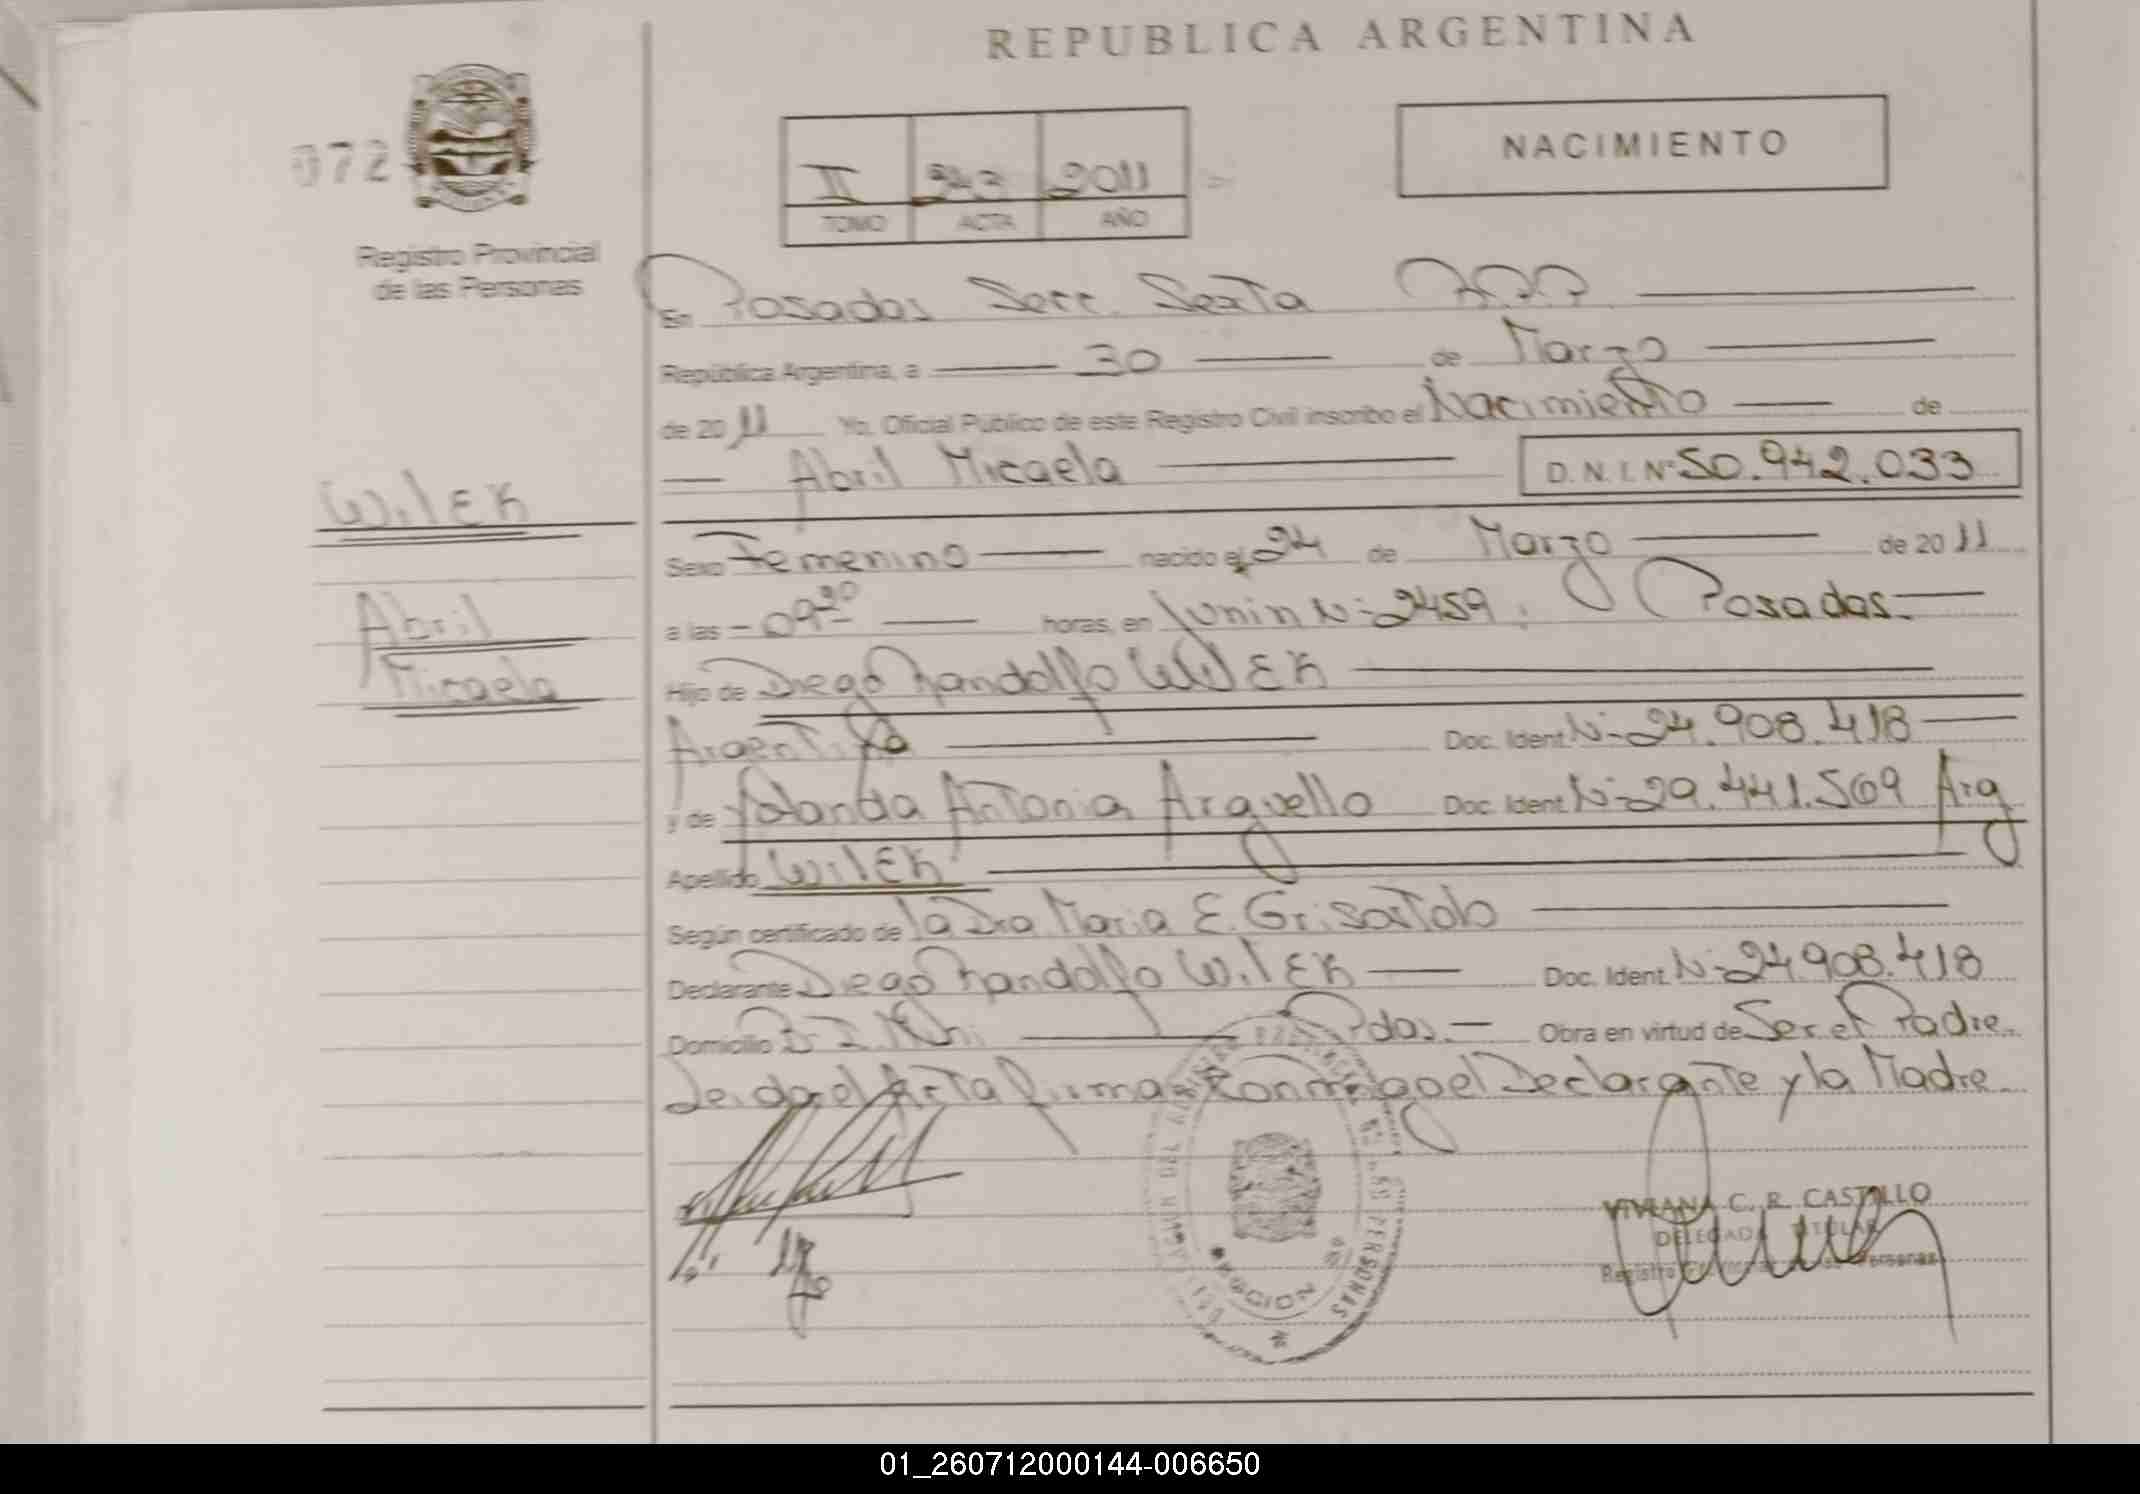 REPUBLICA ARGENTINA
072
NACIMIENTO
II 343 2011
TOMO ACTA AÑO
Registro Provincial
de las Personas
En Posadas Secc. Sexta
República Argentina, a 30 de Marzo
de 2011 Yo, Oficial Público de este Registro Civil inscribo el Nacimiento de
Abril Micaela D.N.I. Nº 50.942.033
WilEK
Abril
Micaela
Sexo Femenino nacido el 24 de Marzo de 2011
a las - 09 horas, en Junin Nº 2459. Posadas.
Hijo de Diego Randolfo WilEK
Argentino Doc. Ident. Nº 24.908.418
y de Yolanda Antonia Arguello Doc. Ident. Nº 29.441.569 Arg
Apellido WilEK
Según certificado de la Dra Maria E.
Declarante Diego Randolfo WilEK Doc. Ident. Nº 24.908.418
Domicilio Pdas. Obra en virtud de Ser el Padre.
Leida el Acta firma Conmigo el Declarante y la Madre
VIVIANA C. R. CASTILLO
DELEGADA TITULAR
Registro Personas
PERSONAS
01_260712000144-006650